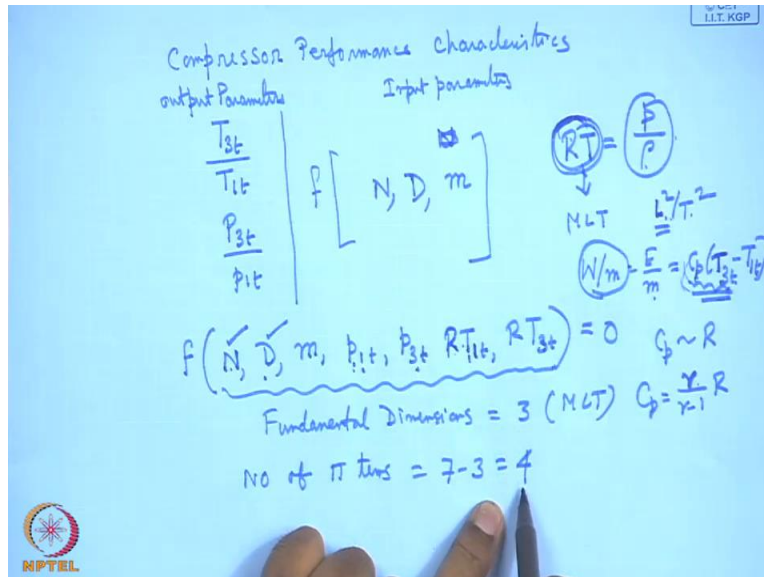 © CET
I.I.T. KGP
Compressor Performance Characteristics
output Parameters Input parameters
T3t / T1t
P3t / p1t
f [ N, D, m ]
RT = p / ρ
MLT L²/T²
W/m = E/m = Cp(T3t - T1t)
f ( N, D, m, p1t, p3t RT1t, RT3t ) = 0 Cp ~ R
Fundamental Dimensions = 3 (MLT) Cp = γ/γ-1 R
NO of π tms = 7-3 = 4
NPTEL